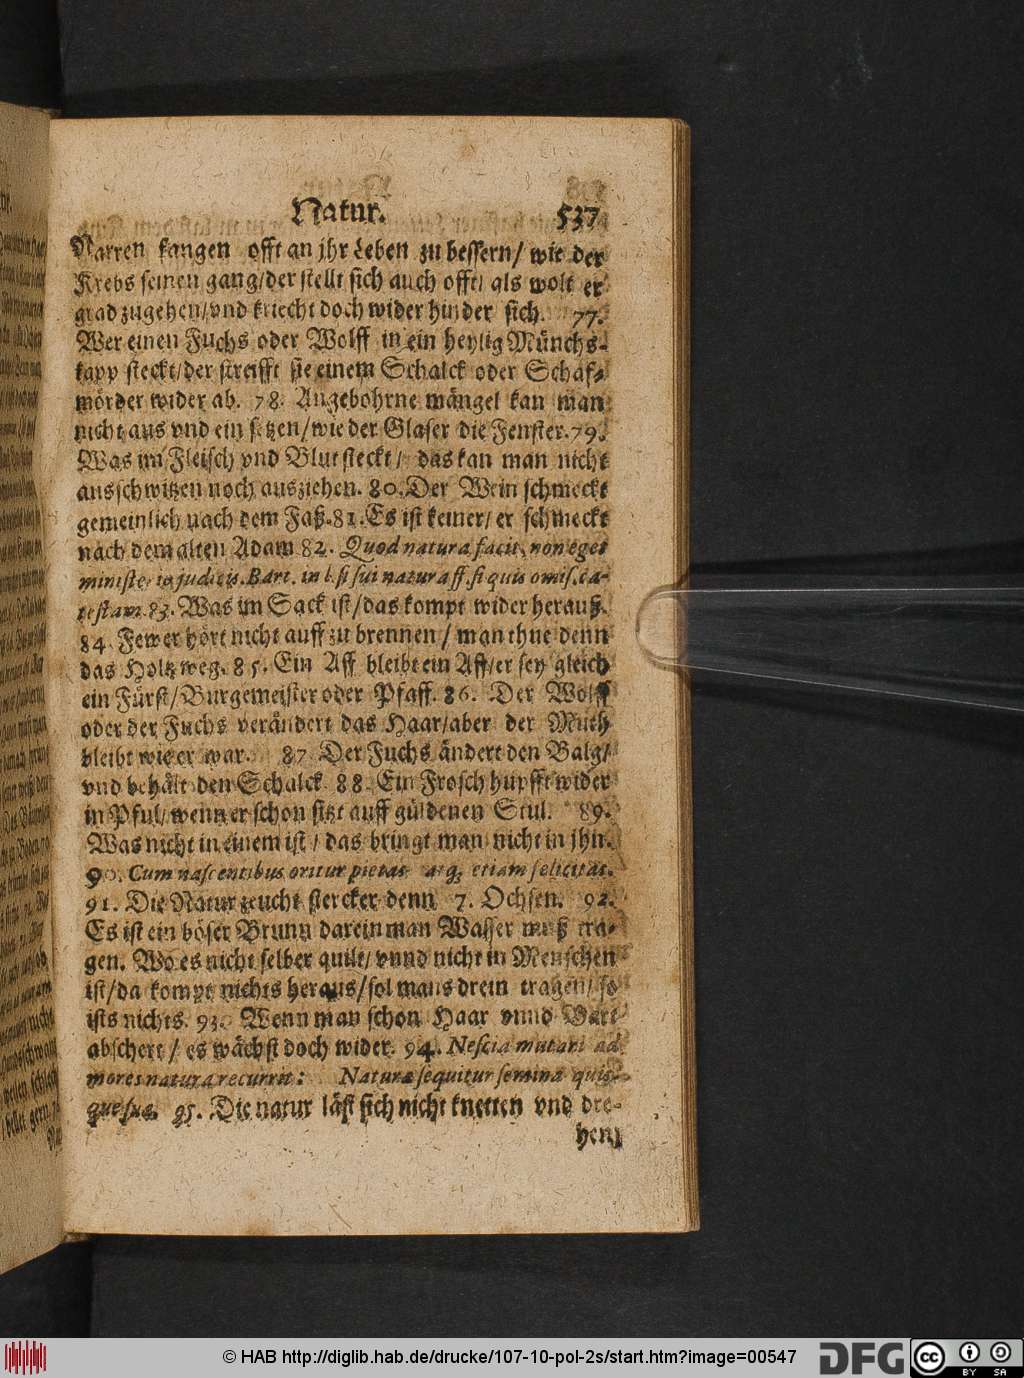 Natur. 537
Narren fangen offt an jhr Leben zu bessern/ wie der
Krebs seinen gang/der stellt sich auch offt/ als wolt er
grad zugehen/vnd kriecht doch wider hinder sich. 77.
Wer einen Fuchs oder Wolff in ein heylig Münchs-
kapp steckt/der streifft sie einem Schalck oder Schaf-
mörder wider ab. 78. Angebohrne mängel kan man
nicht aus vnd ein setzen/wie der Glaser die Fenster.79.
Was im Fleisch vnd Blut steckt/ das kan man nicht
ausschwitzen noch ausziehen. 80.Der Wein schmeckt
gemeinlich nach dem Faß.81.Es ist keiner/ er schmeckt
nach dem alten Adam 82. Quod natura facit, non eget
ministerio judicis. Bart. in l. si sui natura ff. si quis omis. ca-
testam. 83. Was im Sack ist/das kompt wider herauß.
84. Fewer hört nicht auff zu brennen/ man thue denn
das Holtz weg. 85. Ein Aff bleibt ein Aff/er sey gleich
ein Fürst/Burgemeister oder Pfaff. 86. Der Wolff
oder der Fuchs verändert das Haar/aber der Muth
bleibt wie er war. 87. Der Fuchs ändert den Balg/
vnd behält den Schalck. 88. Ein Frosch hupfft wider
in Pful/wenn er schon sitzt auff güldenen Stul. 89.
Was nicht in einem ist/ das bringt man nicht in jhn.
90. Cum nascentibus oritur pietas atq; etiam felicitas.
91. Die Natur zeucht stercker denn 7. Ochsen. 92.
Es ist ein böser Brunn darein man Wasser muß tra-
gen. Wo es nicht selber quilt/ vnnd nicht in Menschen
ist/da kompt nichts heraus/sol mans drein tragen/ so
ists nichts. 93. Wenn man schon Haar vnnd Bart
abschert/ es wächst doch wider. 94. Nescia mutari ad
mores natura recurrit: Naturæ sequitur semina quis-
que suæ. 95. Die natur läst sich nicht knetten vnd dre-
hen/
© HAB http://diglib.hab.de/drucke/107-10-pol-2s/start.htm?image=00547
DFG
cc BY SA